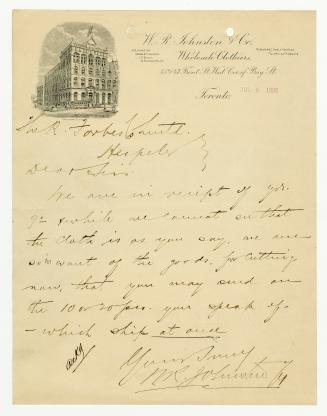 W. R. Johnston & Co.
Wholesale Clothiers,
Front St. West Cor. of Bay St.
Toronto,
The R. Forbes Co. Limtd.
Hespeler
Dear Sirs
We are in receipt of yrs.
& while we cannot see that
the cloth is as you say, we are
so in want of the goods, for cutting
now, that you may send on
the 10 or 20 pcs. you speak of
- which ship at once
Yours Truly
W R Johnston